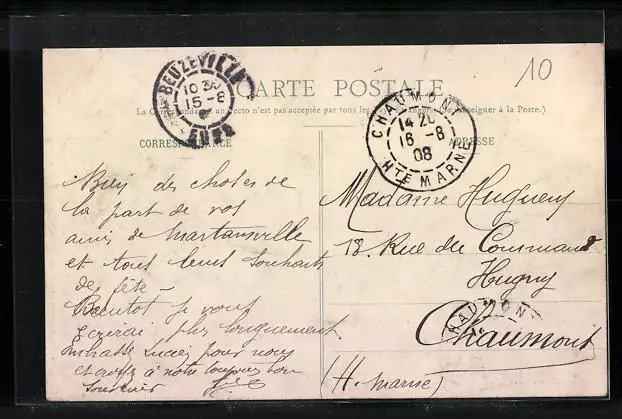 10
BEUZEVILLE
10 30
15-8
EURE
CARTE POSTALE
(La Correspondance au recto n'est pas acceptée par tous les Pays Etrangers. Se renseigner à la Poste.)
CHAUMONT
14 20
16 -8
08
HTE MARNE
CORRESPONDANCE
ADRESSE
Bien des choses de
la part de vos
amis de Martainville
et tous leurs souhaits
de fête -
Bientot je vous
ecrirai plus longuement
embrasse Lucie pour nous
et croyez à notre toujours bon
souvenir
Madame Hugueny
18. Rue du Commandt
Hugny
CHAUMONT
Chaumont
(H. Marne)